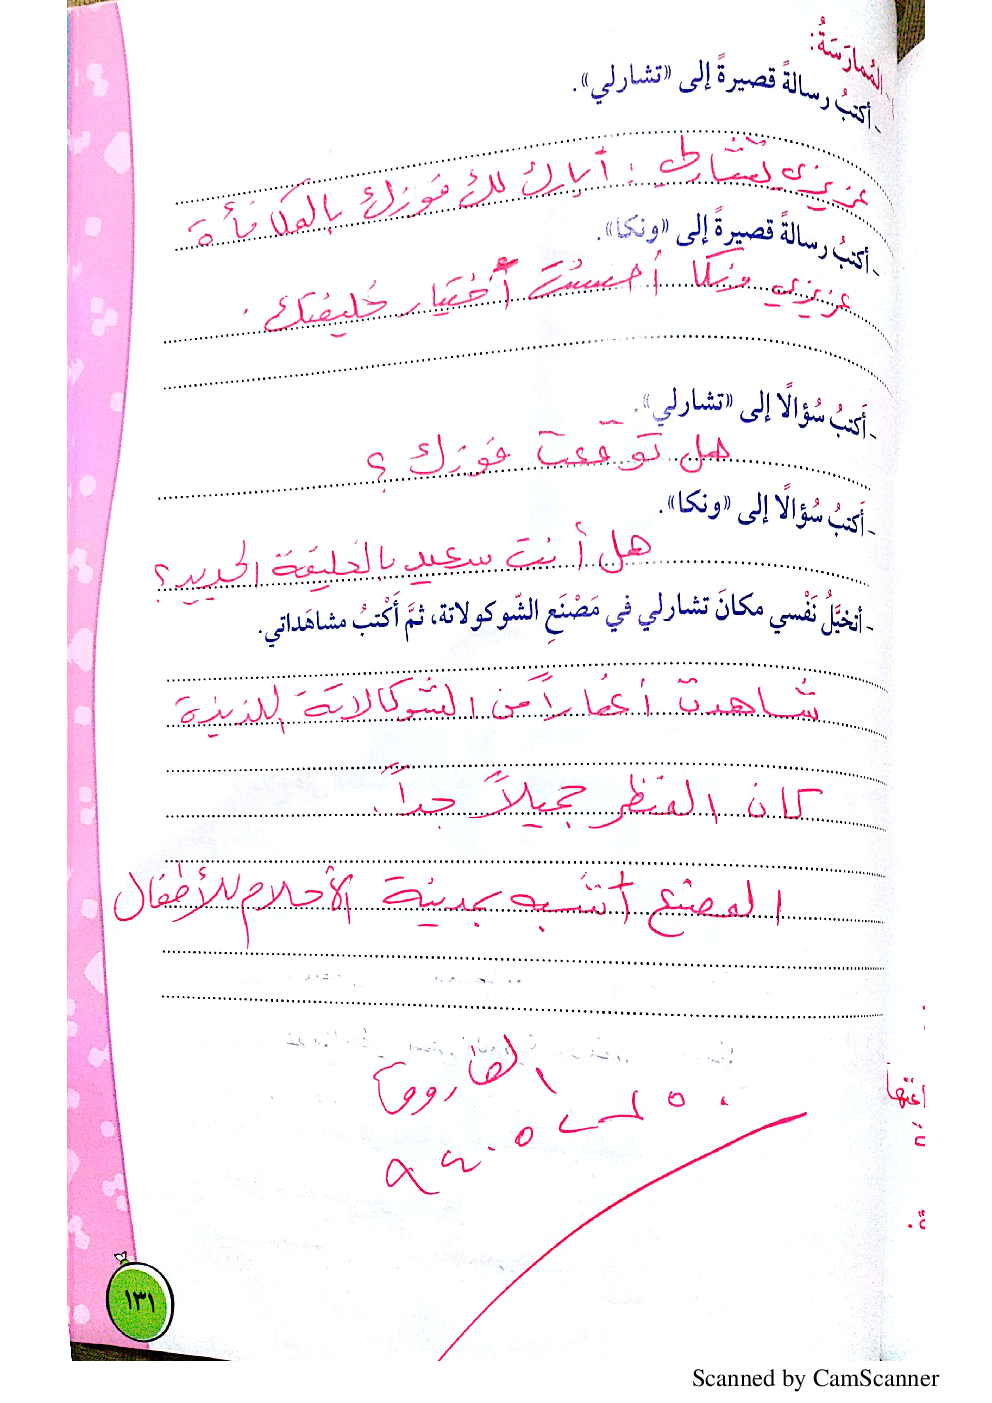 المُمارَسَةُ:
- أكتبُ رسالةً قصيرةً إلى «تشارلي».
عزيزي تشارلي : أبارك لك فوزك بالمكافأة
- أكتبُ رسالةً قصيرةً إلى «ونكا».
عزيزي ونكا أحسنت أختيار خليفتك .
- أَكتبُ سُؤالًا إلى «تشارلي».
هل توقعت فوزك ؟
- أَكتبُ سُؤالًا إلى «ونكا».
هل أنت سعيد بالخليفة الجديد ؟
- أتخيَّلُ نَفْسي مكانَ تشارلي في مَصْنَعِ الشّوكولاتة، ثمَّ أَكْتبُ مشاهَداتي.
شاهدت من الشوكالاتة اللذيذة
كان المنظر جميلاً جداً.
المصنع أشبه بمدينة الأحلام للأطفال
الفاروق
١٣١
Scanned by CamScanner